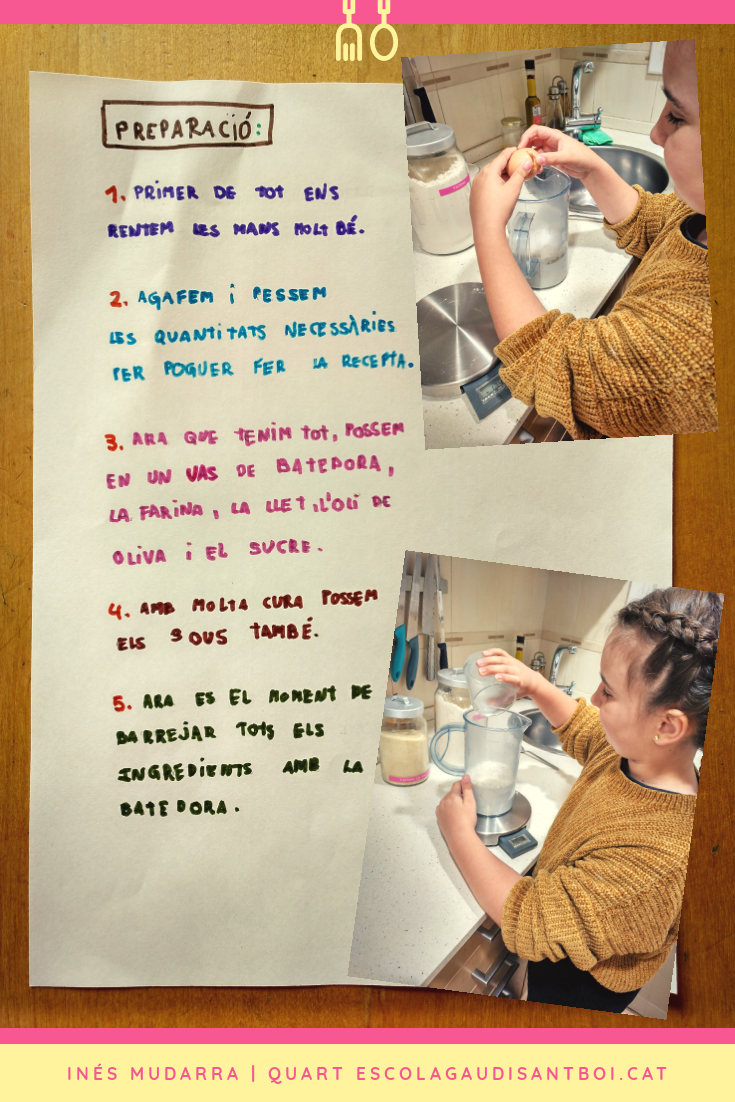 PREPARACIÓ:
1. PRIMER DE TOT ENS
RENTEM LES MANS MOLT BÉ.
2. AGAFEM i PESSEM
LES QUANTiTATS NECESSÀRIES
PER POGUER FER LA RECEPTA.
3. ARA QUE TENIM TOT, POSSEM
EN UN VAS DE BATEDORA,
LA FARINA, LA LLET, L'OLI DE
OLIVA i EL SUCRE.
4. AMB MOLTA CURA POSSEM
ELS 3 OUS TAMBÉ.
5. ARA ES EL MOMENT DE
BARREJAR TOTS ELS
INGREDIENTS AMB LA
BATEDORA.
INÉS MUDARRA | QUART ESCOLAGAUDISANTBOI.CAT